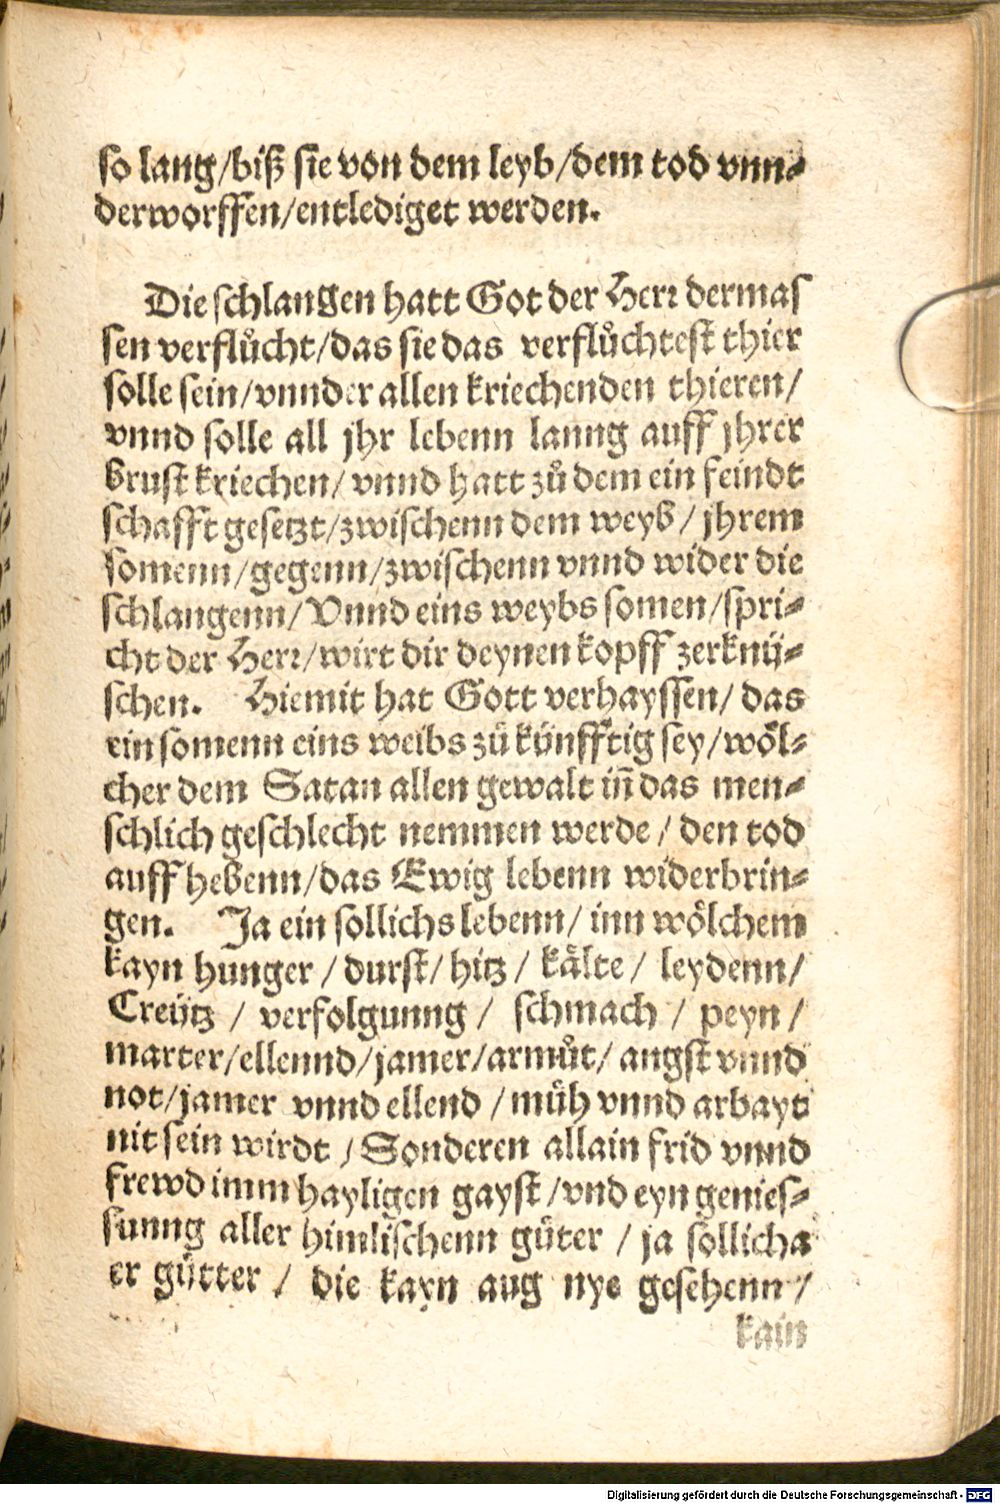 so lang/biß sie von dem leyb/dem tod vnn⸗
derworffen/entlediget werden.
Die schlangen hatt Got der Herr dermas
sen verflůcht/das sie das verflůchtest thier
solle sein/vnnder allen kriechenden thieren/
vnnd solle all jhr lebenn lanng auff jhrer
brust kriechen/vnnd hatt zů dem ein feindt
schafft gesetzt/zwischenn dem weyb/jhrem
somenn/gegenn/zwischenn vnnd wider die
schlangenn/Vnnd eins weybs somen/spri⸗
cht der Herr/wirt dir deynen kopff zerknü⸗
schen. Hiemit hat Gott verhayssen/das
ein somenn eins weibs zů künfftig sey/wöl⸗
cher dem Satan allen gewalt iñ das men⸗
schlich geschlecht nemmen werde/den tod
auff hebenn/das Ewig lebenn widerbrin⸗
gen. Ja ein sollichs lebenn/inn wölchem
kayn hunger/durst/hitz/kälte/leydenn/
Creütz/verfolgunng/schmach/peyn/
marter/ellennd/jamer/armůt/angst vnnd
not/jamer vnnd ellend/müh vnnd arbayt
nit sein wirdt/Sonderen allain frid vnnd
frewd imm hayligen gayst/vnd eyn genies⸗
sunng aller himlischenn güter/ja sollicha
er gütter/die kayn aug nye gesehenn/
kain
Digitalisierung gefördert durch die Deutsche Forschungsgemeinschaft - DFG